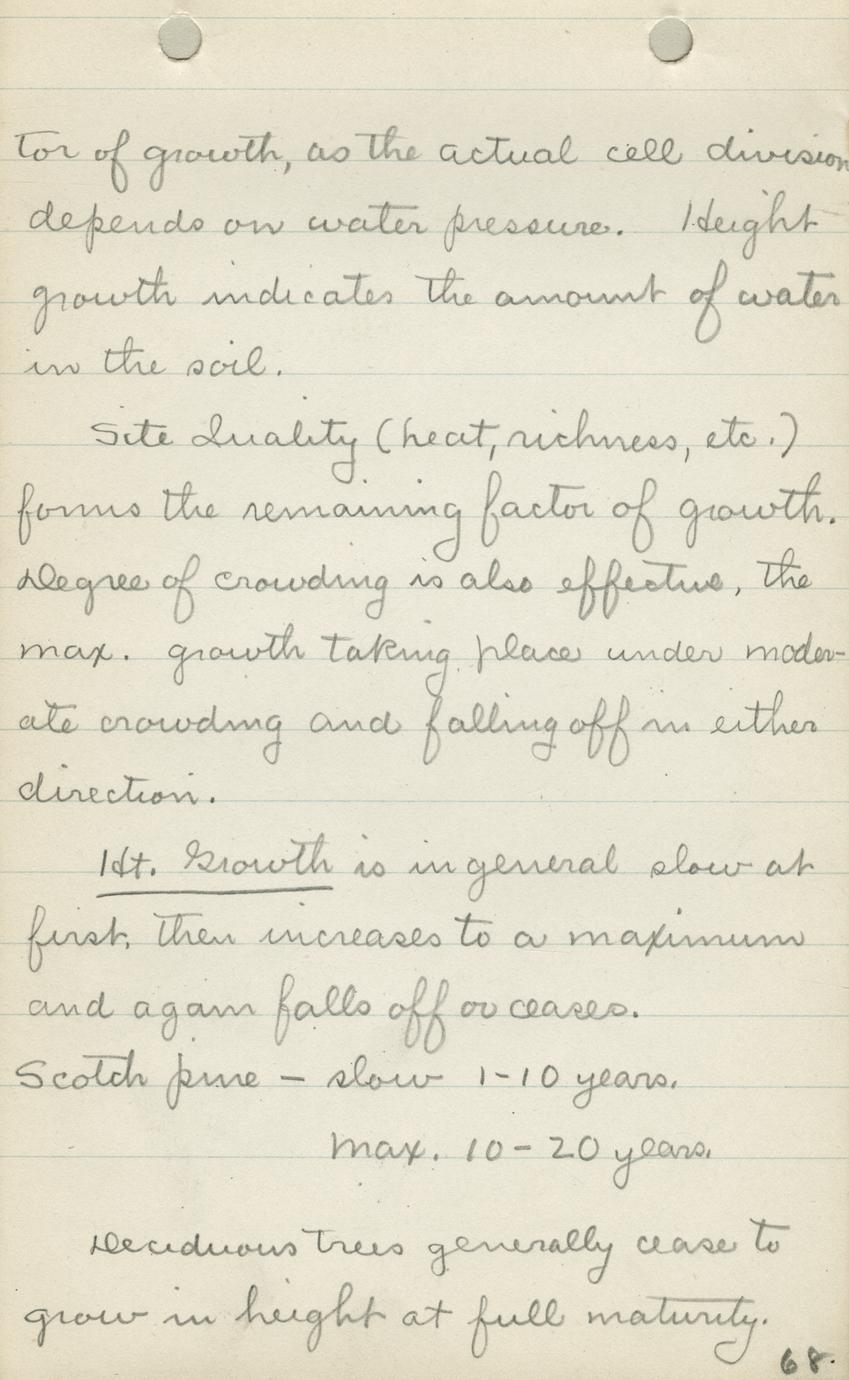 tor of growth, as the actual cell division
depends on water pressure. Height
growth indicates the amount of water
in the soil.
Site Quality (heat, richness, etc.)
forms the remaining factor of growth.
Degree of crowding is also effective, the
max. growth taking place under moder-
ate crowding and falling off in either
direction.
Ht. Growth is in general slow at
first, then increases to a maximum
and again falls off or ceases.
Scotch pine – slow 1-10 years.
Max. 10-20 years.
Deciduous trees generally cease to
grow in height at full maturity.
68.